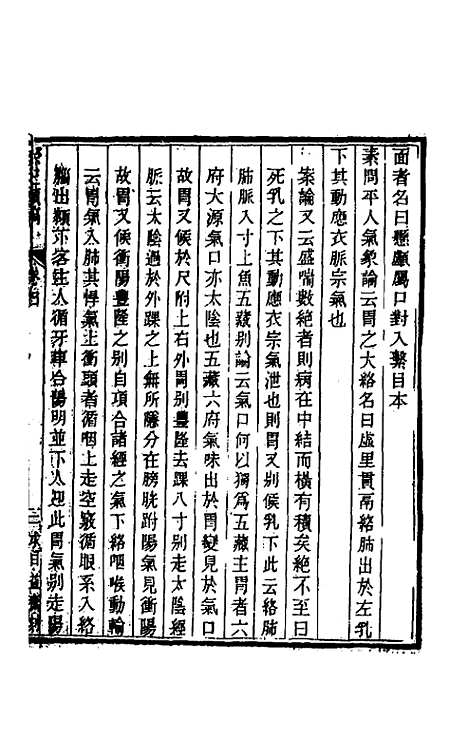 面者名曰懸顱屬口對入繫目本
素問平人氣象論云胃之大絡名曰虛里貫鬲絡肺出於左乳
下其動應衣脈宗氣也
案論又云盛喘數絶者則病在中結而橫有積矣絶不至曰
死乳之下其動應衣宗氣泄也則胃又别候乳下此云絡肺
肺脈入寸上魚五藏别論云氣口何以獨爲五藏主胃者六
府大源氣口亦太陰也五藏六府氣味出於胃變見於氣口
故胃又候於尺附上右外胃别豐隆去踝八寸别走太陰經
脈云太陰過於外踝之上無所隱分在膀胱跗陽氣見衝陽
故胃又候衝陽豐隆之别自項合諸經之氣下絡咽喉動輸
云胃氣入肺其悍氣上衝頭者循咽上走空竅循眼系入絡
腦出顑下客主人循牙車合陽明並下人迎此胃氣别走陽